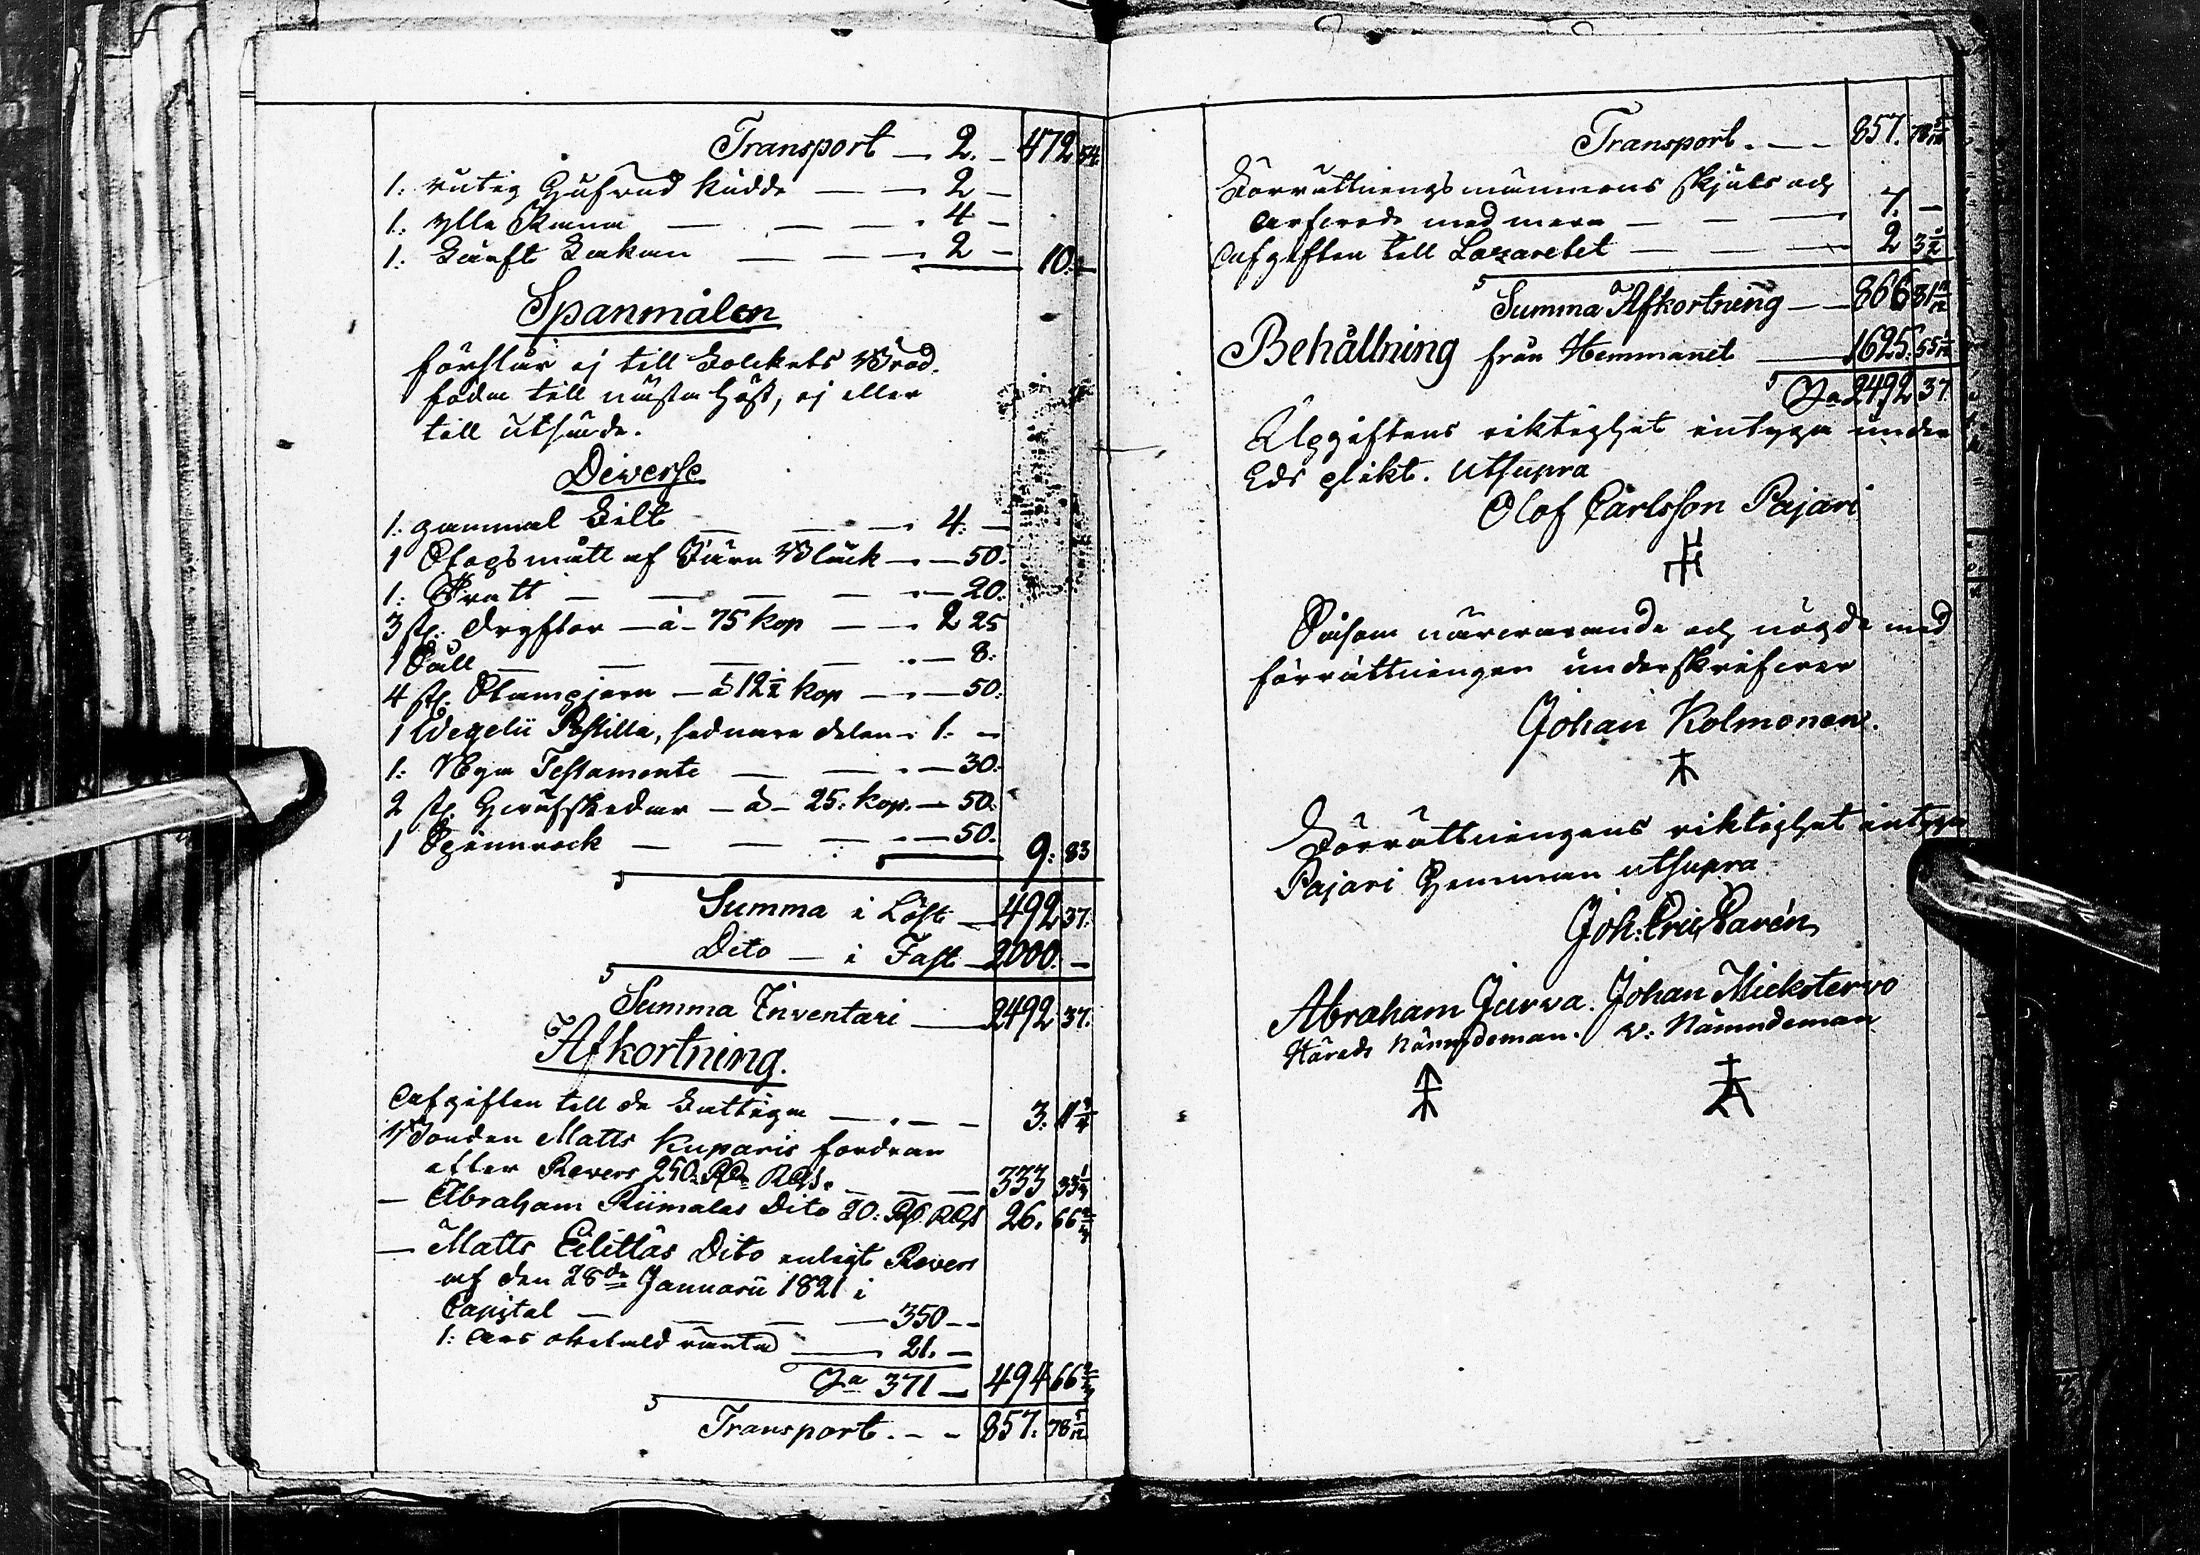 Transport — 2. — 472 54.
1: rutig Hufvud kudde — — 2 —
1: ylle Ramm — — — 4 —
1: Lärft Lakan — — — 2 — 10. —
Spanmålen
förslår ej till Folckets Bröd
föda till nästa höst, ej eller
till utsäde.
Diverse
1: gammal Filt — — — 4. —
1 Stopsmått af Järn Bläck — — 50.
1: Tratt — — — — — 20.
3 st. Dryftor — à — 75 kop — — 2 25
1 Såll — — — — — 8:
4 st. Stampjern — à 12 1/2 kop — — 50:
1 Wegelii Postilla, sednare delen — 1. —
1: Nya Testamente — — — 30:
2 st. Häfskedar — à — 25: kop. — 50:
1 Spinnrock — — — — 50. 9: 83
Summa i Löst — 492 37.
Dito — i Fast — 2000. —
Summa Inventarii — 2492 37.
Afkortning.
Afgiften till de Fattiga — — — 3. 11 3/4
Bonden Matts Kuparis fordran
efter Revers 250 Rd. RGS. — — — 333 33 1/3
— Abraham Riimalas Dito 20: Rd. RGS 26. 66 2/3
— Matts Eilittäs Dito enligt Revers
af den 28de Januarii 1821 i
Capital — — — — 350 — —
1: års obetald ränta — 21. —
Sa 371 — 494 66 2/3
Transport. — — 857. 78 5/12
Transport. — — 857. 78 5/12
Förrättningsmännens skjuts och
arfvode med mera — — — 7. —
Afgiften till Lazarettet — — — 2 3 1/2
Summa Afkortning — 866 81 11/12
Behållning från Hemmanet — 1625. 55 1/12
Sa 2492 37.
Upgiftens riktighet intyga under
Eds plikt. Utsupra
Olof Carlsson Pajari
Såsom närvarande och nögde med
förrättningen underskrifver
Johan Kolmonen.
Förrättningens riktighet intyga
Pajari Hemman utsupra
Joh: Eric Pavén
Abraham Jurva. Johan Miekstervo
Härads Nämndeman. v: Nämndeman